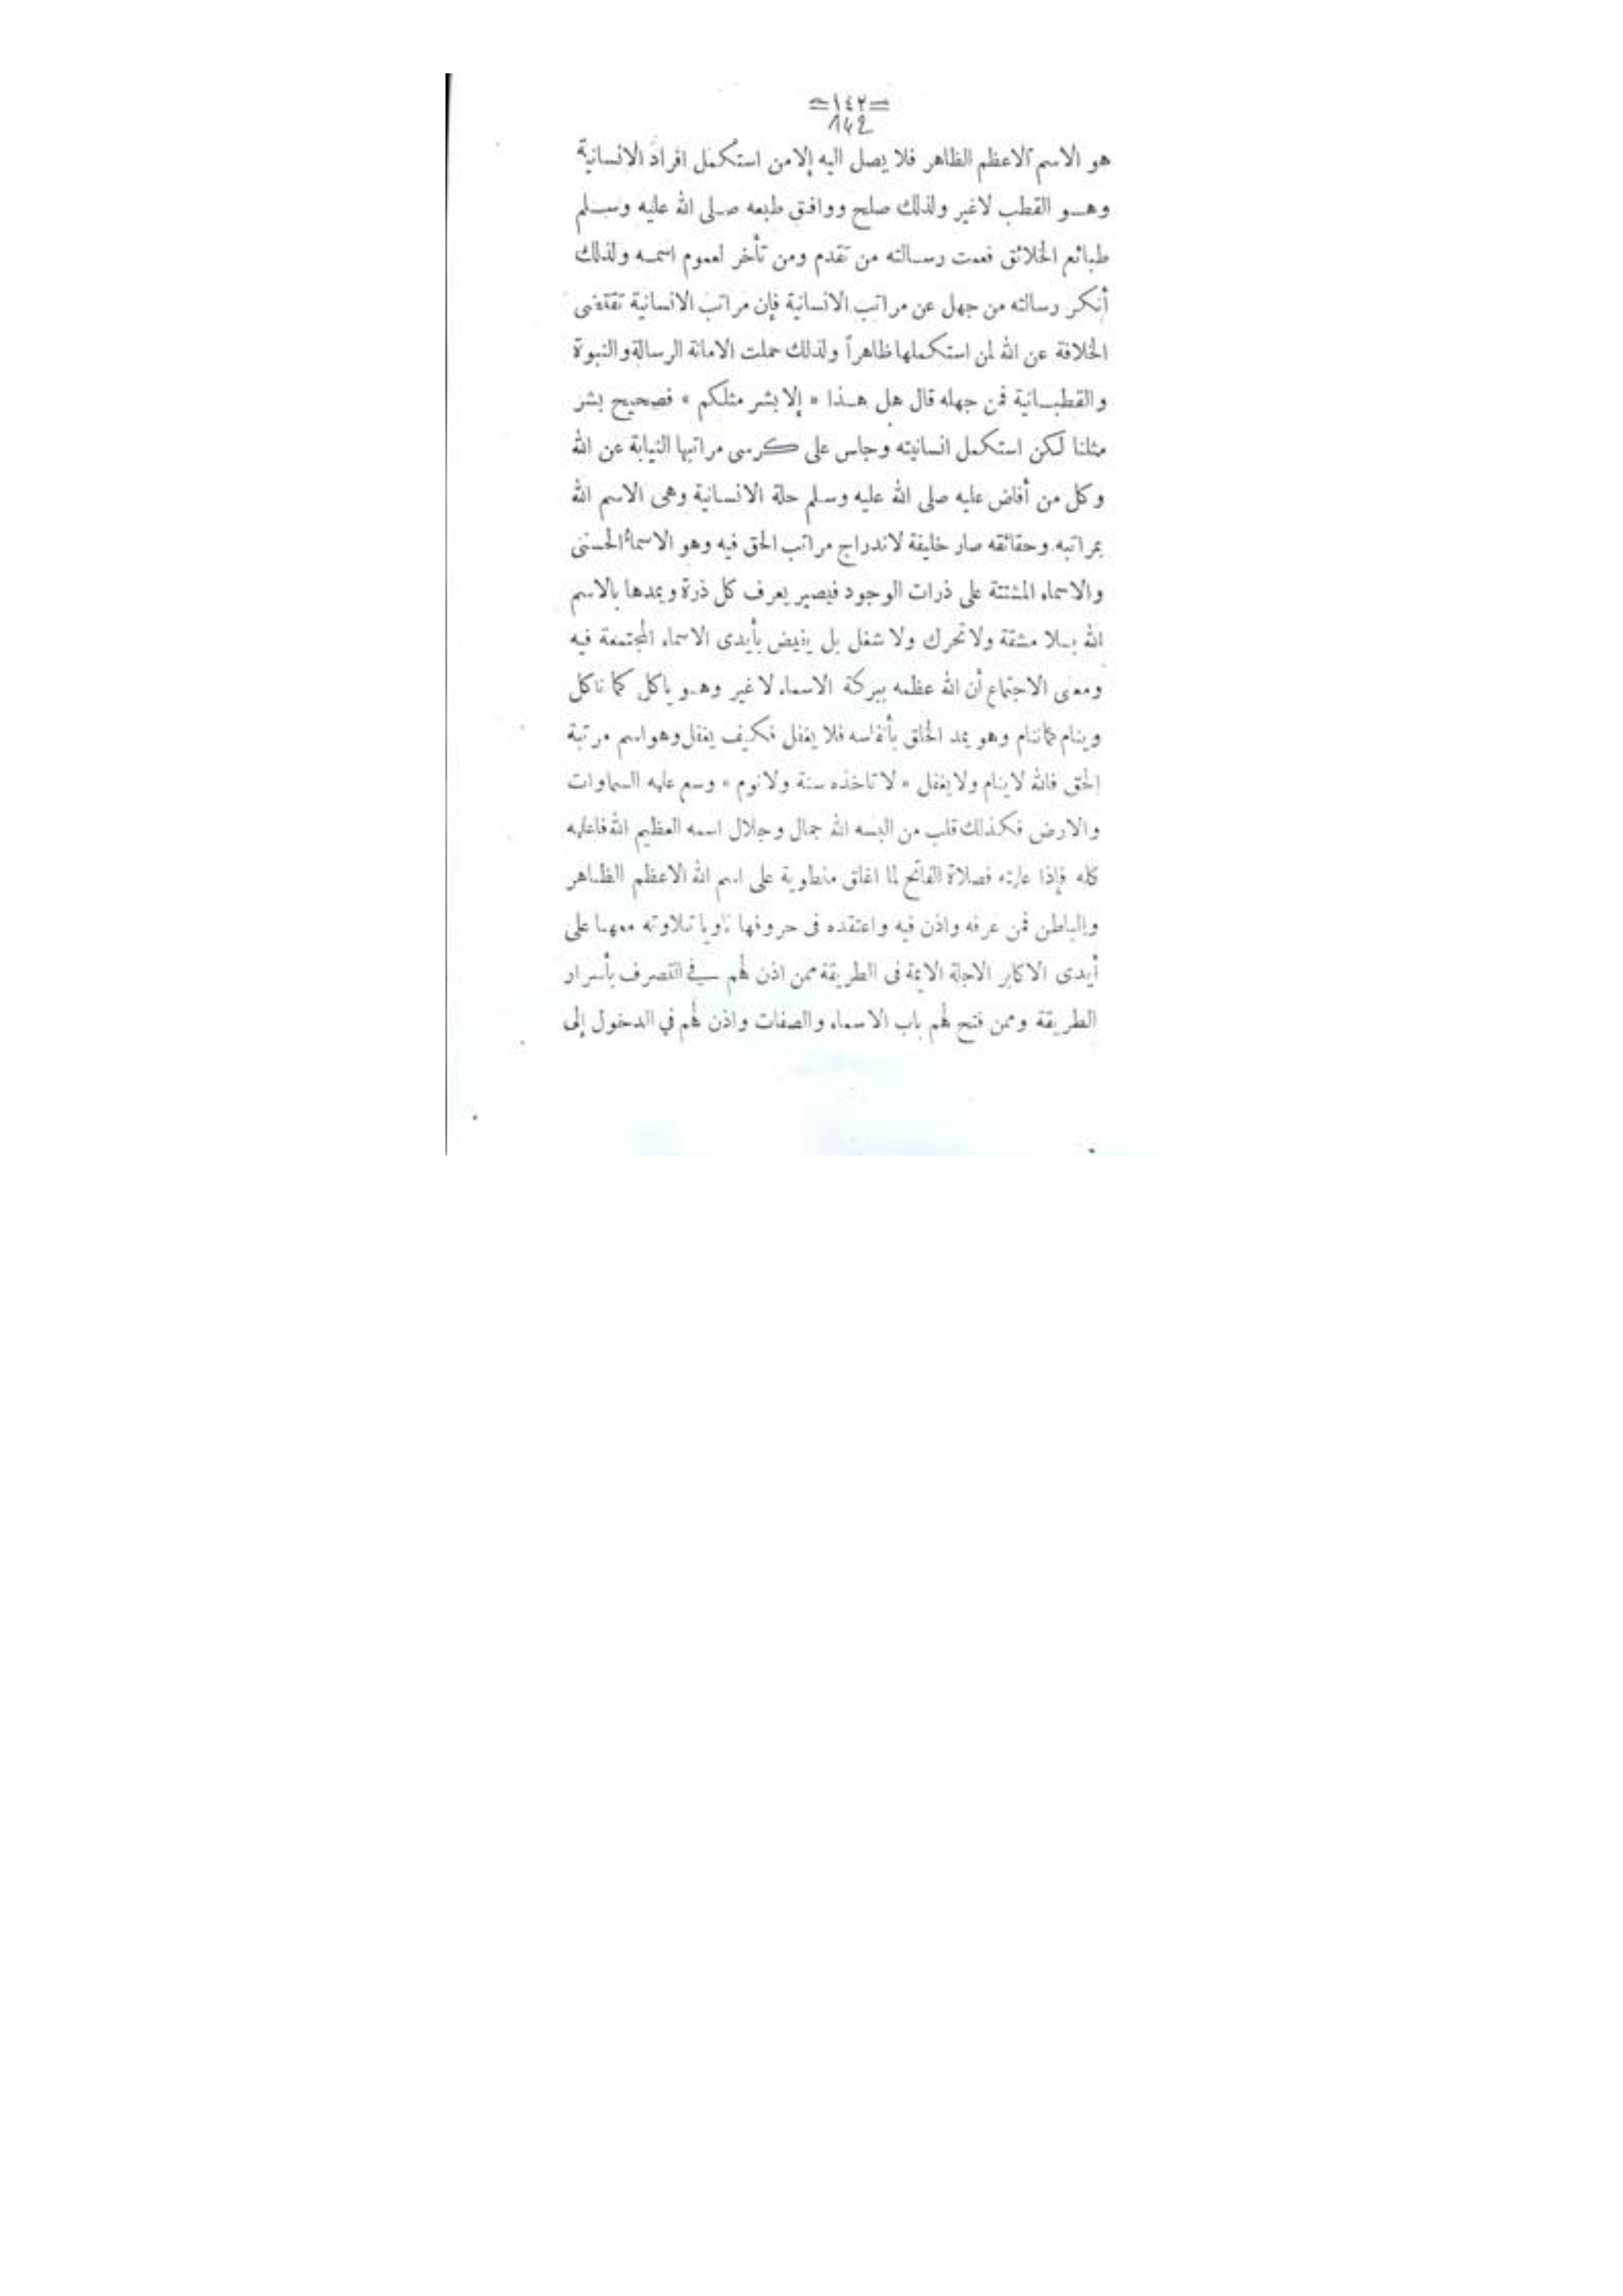 =١٤٢=
142
هو الاسم الاعظم الظاهر فلا يصل اليه إلا من استكمل افراد الانسانية
وهو القطب لاغير ولذلك صلح ووافق طبعه صلى الله عليه وسلم
طبائع الخلائق فعمت رسالته من تقدم ومن تأخر لعموم اسمه ولذلك
أنكر رسالته من جهل عن مراتب الانسانية فإن مراتب الانسانية تقتضى
الخلافة عن الله لمن استكملها ظاهراً ولذلك حملت الامانة الرسالة والنبوة
والقطبانية فمن جهله قال هل هذا « إلا بشر مثلكم » فصحيح بشر
مثلنا لكن استكمل انسانيته وجلس على كرسى مراتبها النيابة عن الله
وكل من أفاض عليه صلى الله عليه وسلم حلة الانسانية وهى الاسم الله
بمراتبه وحقائقه صار خليفة لاندراج مراتب الحق فيه وهو الاسماء الحسنى
والاسماء المشتتة على ذرات الوجود فيصير يعرف كل ذرة ويمدها بالاسم
الله بلا مشقة ولا تحرك ولا شغل بل يفيض بأيدى الاسماء المجتمعة فيه
ومعنى الاجتماع أن الله عظمه ببركة الاسماء لا غير وهو ياكل كما ناكل
وينام كما ننام وهو يمد الخلق بأنفاسه فلا يغفل فكيف يغفل وهو اسم مرتبة
الحق فالله لا ينام ولا يغفل « لا تاخذه سنة ولا نوم » وسع علمه السماوات
والارض فكذلك قلب من البسه الله جمال وجلال اسمه العظيم الله فاعلمه
كله فإذا علمته فصلاة الفاتح لما اغلق منطوية على اسم الله الاعظم الظاهر
والباطن فمن عرفه واذن فيه واعتقده فى حروفها ناويا تلاوته معها على
أيدى الاكابر الاجلة الايمة فى الطريقة ممن اذن لهم في التصرف بأسرار
الطريقة وممن فتح لهم باب الاسماء والصفات واذن لهم في الدخول إلى